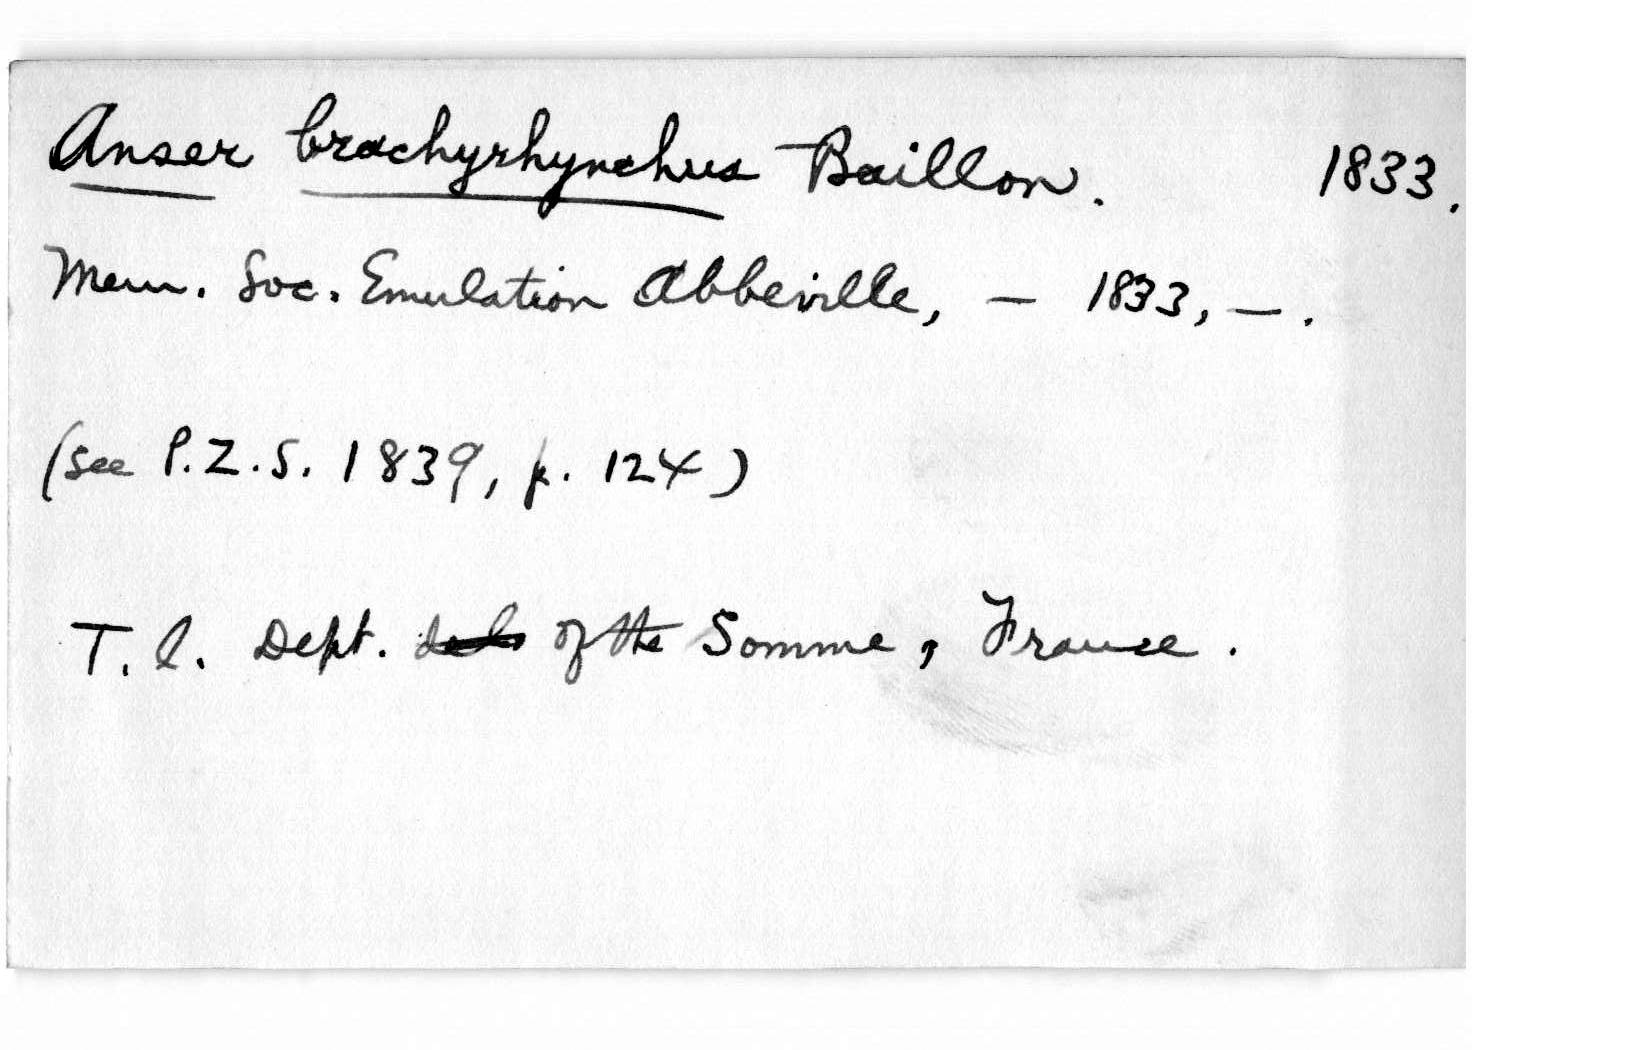 Anser brachyrhynchus Baillon. 1833.
Mem. Soc. Emulation Abbeville, — 1833, —.
(see P.Z.S. 1839, p. 124)
T. l. Dept. of the Somme, France.